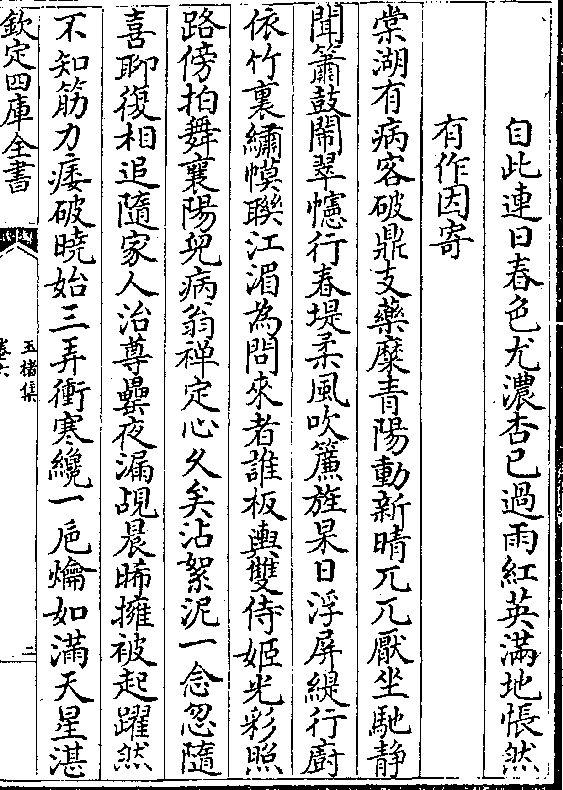 自此連日春色尤濃杏已過雨紅英滿地悵然
有作因寄
棠湖有病客破鼎支藥糜青陽動新晴兀兀厭坐馳静
聞簫鼓鬧翠幰行春堤柔風吹簾旌杲日浮屏緹行廚
依竹裏繡幙聯江湄為問來者誰板輿雙侍姬光彩照
路傍拍舞襄陽兒病翁禪定心久矣沾絮泥一念忽隨
喜聊復相追隨家人治尊罍夜漏覘晨晞擁被起躍然
不知筋力痿破曉始三弄衝寒纔一巵爚如滿天星湛
欽定四庫全書
玉楮集
卷六
二